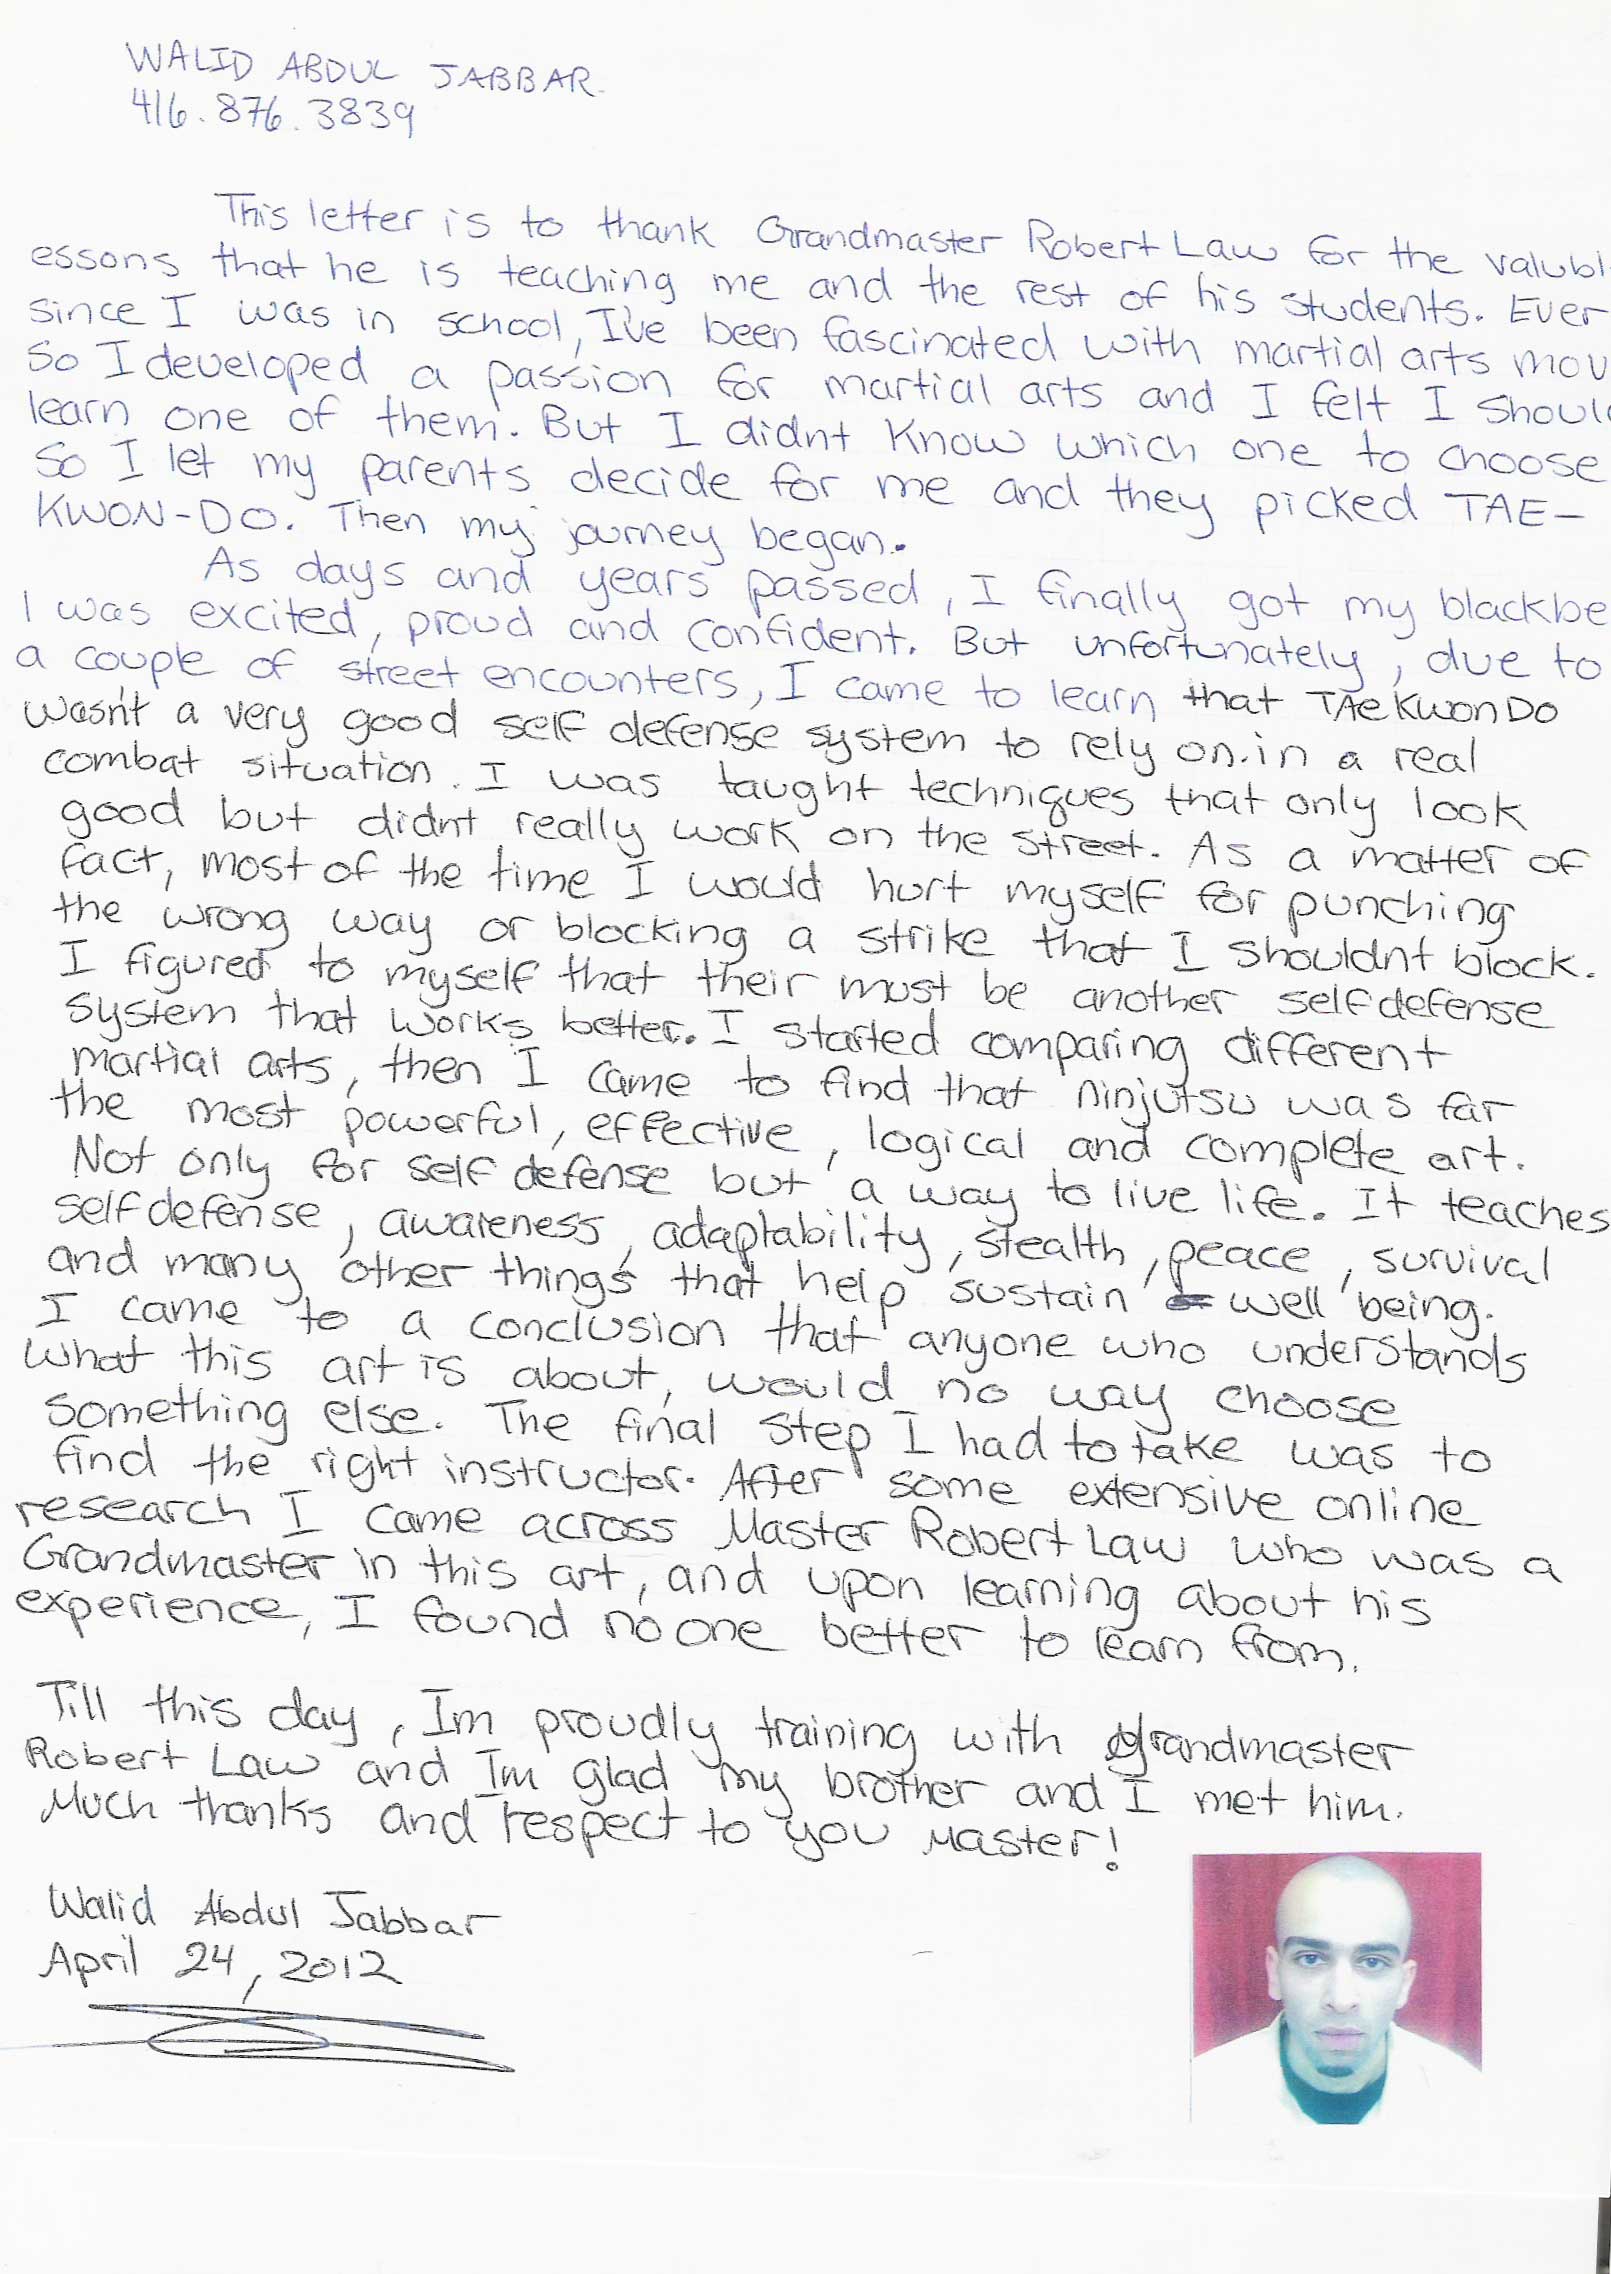 WALID ABDUL JABBAR.
416.876.3839
This letter is to thank Grandmaster Robert Law for the valubl
essons that he is teaching me and the rest of his students. Ever
since I was in school, I've been fascinated with martial arts mov
So I developed a passion for martial arts and I felt I should
learn one of them. But I didnt know which one to choose
So I let my parents decide for me and they picked TAE-
KWON-DO. Then my journey began.
As days and years passed, I finally got my blackbe
I was excited, proud and confident. But unfortunately, due to
a couple of street encounters, I came to learn that TAeKwonDo
wasn't a very good self defense system to rely on.in a real
combat situation. I was taught techniques that only look
good but didnt really work on the street. As a matter of
fact, most of the time I would hurt myself for punching
the wrong way or blocking a strike that I shouldnt block.
I figured to myself that their must be another self defense
system that works better. I started comparing different
martial arts, then I came to find that ninjutsu was far
the most powerful, effective, logical and complete art.
Not only for self defense but a way to live life. It teaches
self defense, awareness, adaptability, stealth, peace, survival
and many other things that help sustain well being.
I came to a conclusion that anyone who understands
what this art is about, would no way choose
something else. The final step I had to take was to
find the right instructor. After some extensive online
research I came across Master Robert Law who was a
Grandmaster in this art, and upon learning about his
experience, I found no one better to learn from.
Till this day, Im proudly training with grandmaster
Robert Law and Im glad my brother and I met him.
Much thanks and respect to you Master!
Walid Abdul Jabbar
April 24, 2012